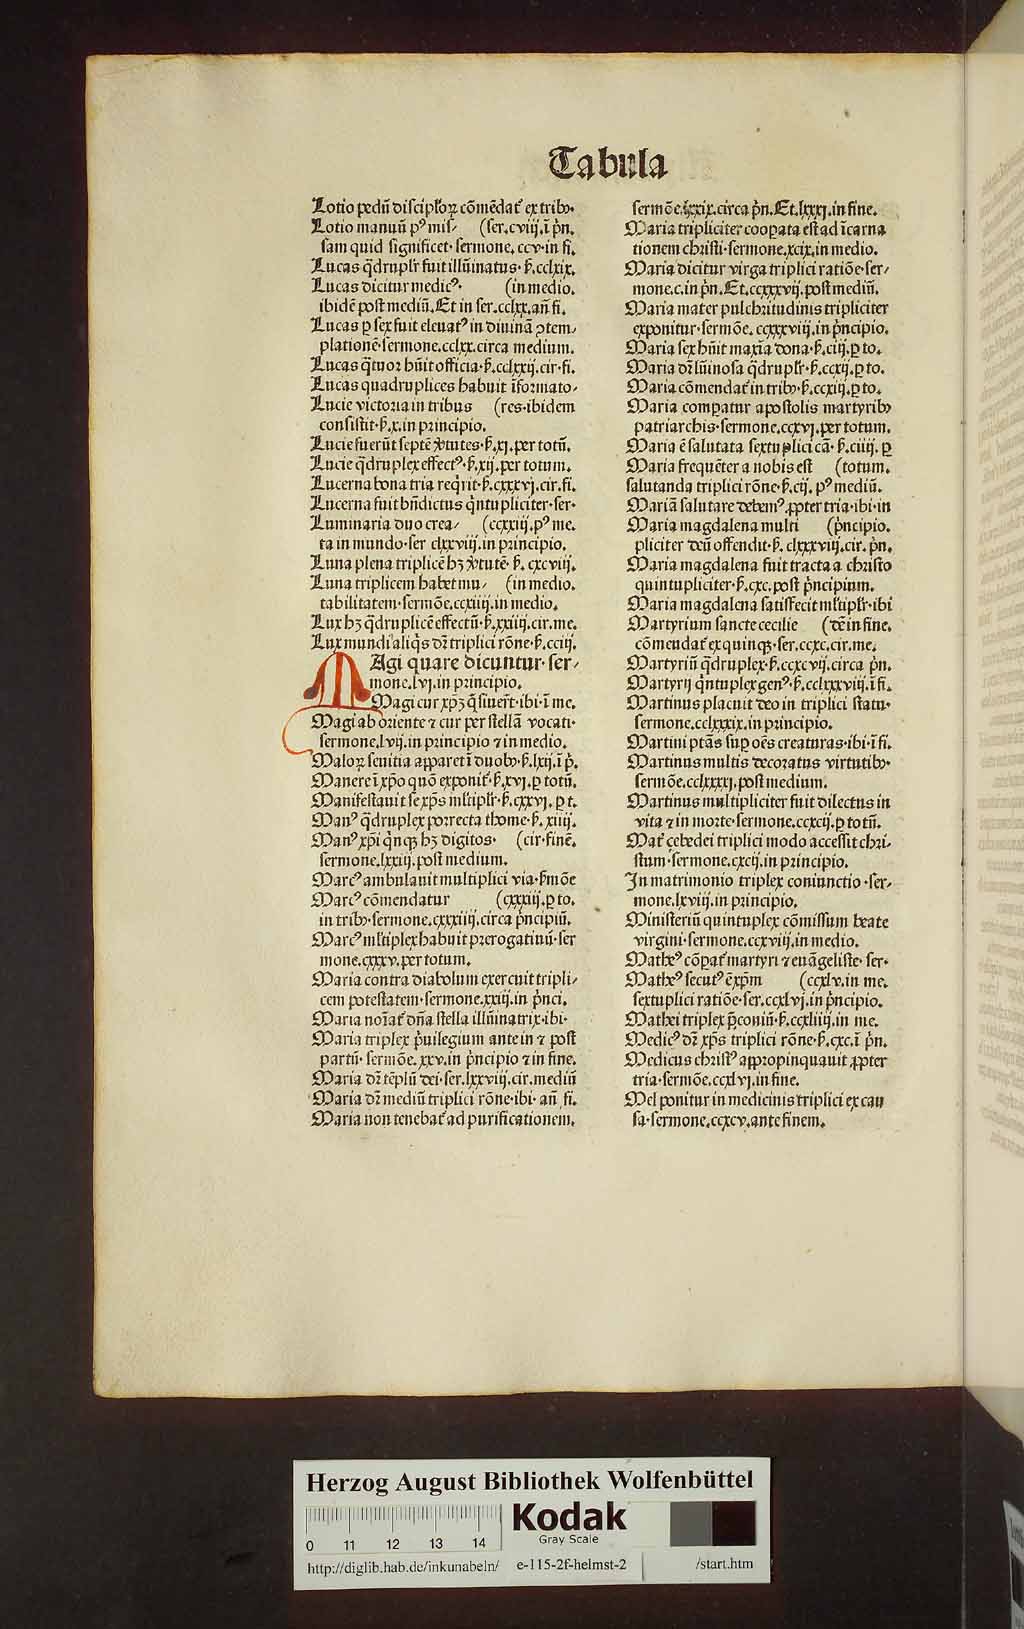 Tabula
Lotio pedū discipl'oꝝ cōmēdat᷑ ex tribꝰ.
Lotio manuū pꝰ mis⸗ (ser.cviij.ī pͥn.
sam quid significet. sermone. ccv. in fi.
Lucas q̄drupl'r fuit illūinatus. ẜ. cclxix.
Lucas dicitur medicꝰ. (in medio.
ibidē post mediū. Et in ser.cclxx.añ fi.
Lucas ꝑ sex fuit eleuatꝰ in diuinā ꝯtem⸗
platione᷑. sermone.cclxx.circa medium.
Lucas q̄tuor hūit officia. ẜ.cclxxij.cir.fi.
Lucas quadruplices habuit īformato⸗
Lucie victoria in tribus (res.ibidem
consistit. ẜ.x.in principio.
Lucie fuerūt septē ꝟtutes. ẜ.xj.per totū.
Lucie q̄druplex effectꝰ. ẜ.xij.per totum.
Lucerna bona tria reqͥrit. ẜ.cxxxvj.cir.fi.
Lucerna fuit bn̄dictus qͥntupliciter. ser.
Luminaria duo crea⸗ (ccxxiij.pꝰ me.
ta in mundo. ser clxxviij.in principio.
Luna plena triplicē hꝫ ꝟtutē. ẜ. cxcviij.
Luna triplicem habet mu⸗ (in medio.
tabilitatem. sermōe.ccxiiij.in medio.
Lux hꝫ q̄druplicē effectū. ẜ.xxiiij.cir.me.
Lux mundi aliqͥs dr̄ triplici rōne. ẜ.cciij.
MAgi quare dicuntur. ser⸗
mone.lvj.in principio.
Magi cur xp̄ꝫ q̄siuer̄t. ibi. ī me.
Magi ab oriente ⁊ cur per stellā vocati.
sermone.lvij.in principio ⁊ in medio.
Maloꝝ seuitia apparet ī duobꝰ. ẜ.lxij.ī pͥ.
Manere ī xp̄o quō exponit᷑. ẜ.xvj.ꝑ totū.
Manifestauit se xp̄s ml'tipl'r. ẜ.cxxvj. ꝑ t.
Manꝰ q̄druplex porrecta thome. ẜ. xiiij.
Manꝰ xp̄i qͥnqꝫ hꝫ digitos. (cir.finē.
sermone.lxxiij.post medium.
Marcꝰ ambulauit multiplici via. ẜmōe
Marcꝰ cōmendatur (cxxxiij.ꝑ to.
in tribꝰ. sermone.cxxxiiij.circa pͥncipiū.
Marcꝰ ml'tiplex habuit prerogatiuū. ser
mone.cxxxv.per totum.
Maria contra diabolum exercuit tripli⸗
cem potestatem. sermone.xxiij.in pͥnci.
Maria noīat᷑ dn̄a stella illūinatrix. ibi.
Maria triplex pͥuilegium ante in ⁊ post
partū. sermōe. xxv.in pͥncipio ⁊ in fine.
Maria dr̄ tēplū dei. ser.lxxviij.cir.mediū
Maria dr̄ mediū triplici rōne. ibi. añ fi.
Maria non tenebat᷑ ad purificationem.
circa pͥn. Et.lxxxj.in fine.
Maria tripliciter cooꝑata est ad īcarna
tionem christi. sermone.xcix.in medio.
Maria dicitur virga triplici ratiōe. ser⸗
mone.c.in pͥn. Et.ccxxxvij.post mediū.
Maria mater pulchritudinis tripliciter
exponitur. sermōe. ccxxxviij.in pͥncipio.
Maria sex hūit maxīa dona. ẜ.ciij.ꝑ to.
Maria dr̄ lūinosa q̄drupl'r. ẜ.ccxij.ꝑ to.
Maria cōmendat᷑ in tribꝰ. ẜ.ccxiij.ꝑ to.
Maria comꝑatur apostolis martyribꝰ
patriarchis. sermone.ccxvj.per totum.
Maria ē salutata sextuplici cā. ẜ.ciiij. ꝑ
Maria frequēter a nobis est (totum.
salutanda triplici rōne. ẜ.cij. pꝰ mediū.
Mariā salutare debemꝰ ꝓpter tria. ibi. in
Maria magdalena multi (pͥncipio.
pliciter deū offendit. ẜ. clxxxviij.cir. pͥn.
Maria magdalena fuit tracta a christo
quintupliciter. ẜ.cxc.post pͥncipium.
Maria magdalena satiffecit ml'tipl'r. ibi
Martyrium sancte cecilie (dē in fine.
cōmendat᷑ ex quinqꝫ. ser.ccxc.cir.me.
Martyriū q̄druplex. ẜ.ccxcvij.circa pͥn.
Martyrij qͥntuplex genꝰ. ẜ.cclxxxviij.ī fi.
Martinus placuit deo in triplici statu.
sermone.cclxxxix.in principio.
Martini ptās suꝑ oēs creaturas. ibi. ī fi.
Martinus multis decoratus virtutibꝰ.
sermōe.cclxxxxj.post medium.
Martinus multipliciter fuit dilectus in
vita ⁊ in morte. sermone.ccxcij.ꝑ totū.
Mat᷑ cebedei triplici modo accessit chri⸗
stum. sermone.cxcij.in principio.
In matrimonio triplex coniunctio. ser⸗
mone.lxviij.in principio.
Ministeriū quintuplex cōmissum beate
virgini. sermone.ccxviij.in medio.
Matheꝰ cōꝑat᷑ martyri ⁊ euāgeliste. ser.
Matheꝰ secutꝰ ē xp̄m (ccxlv.in me.
sextuplici ratiōe. ser.ccxlvj.in pͥncipio.
Mathei triplex p̄coniū. ẜ.ccxliiij.in me.
Medicꝰ dr̄ xp̄s triplici rōne. ẜ.cxc.ī pͥn.
Medicus christꝰ appropinquauit ꝓpter
tria. sermōe.ccxlvj.in fine.
Mel ponitur in medicinis triplici ex cau
sa. sermone.ccxcv.ante finem.
Herzog August Bibliothek Wolfenbüttel
Kodak
Gray Scale
0 11 12 13 14
http://diglib.hab.de/inkunabeln/ e-115-2f-helmst-2 /start.htm